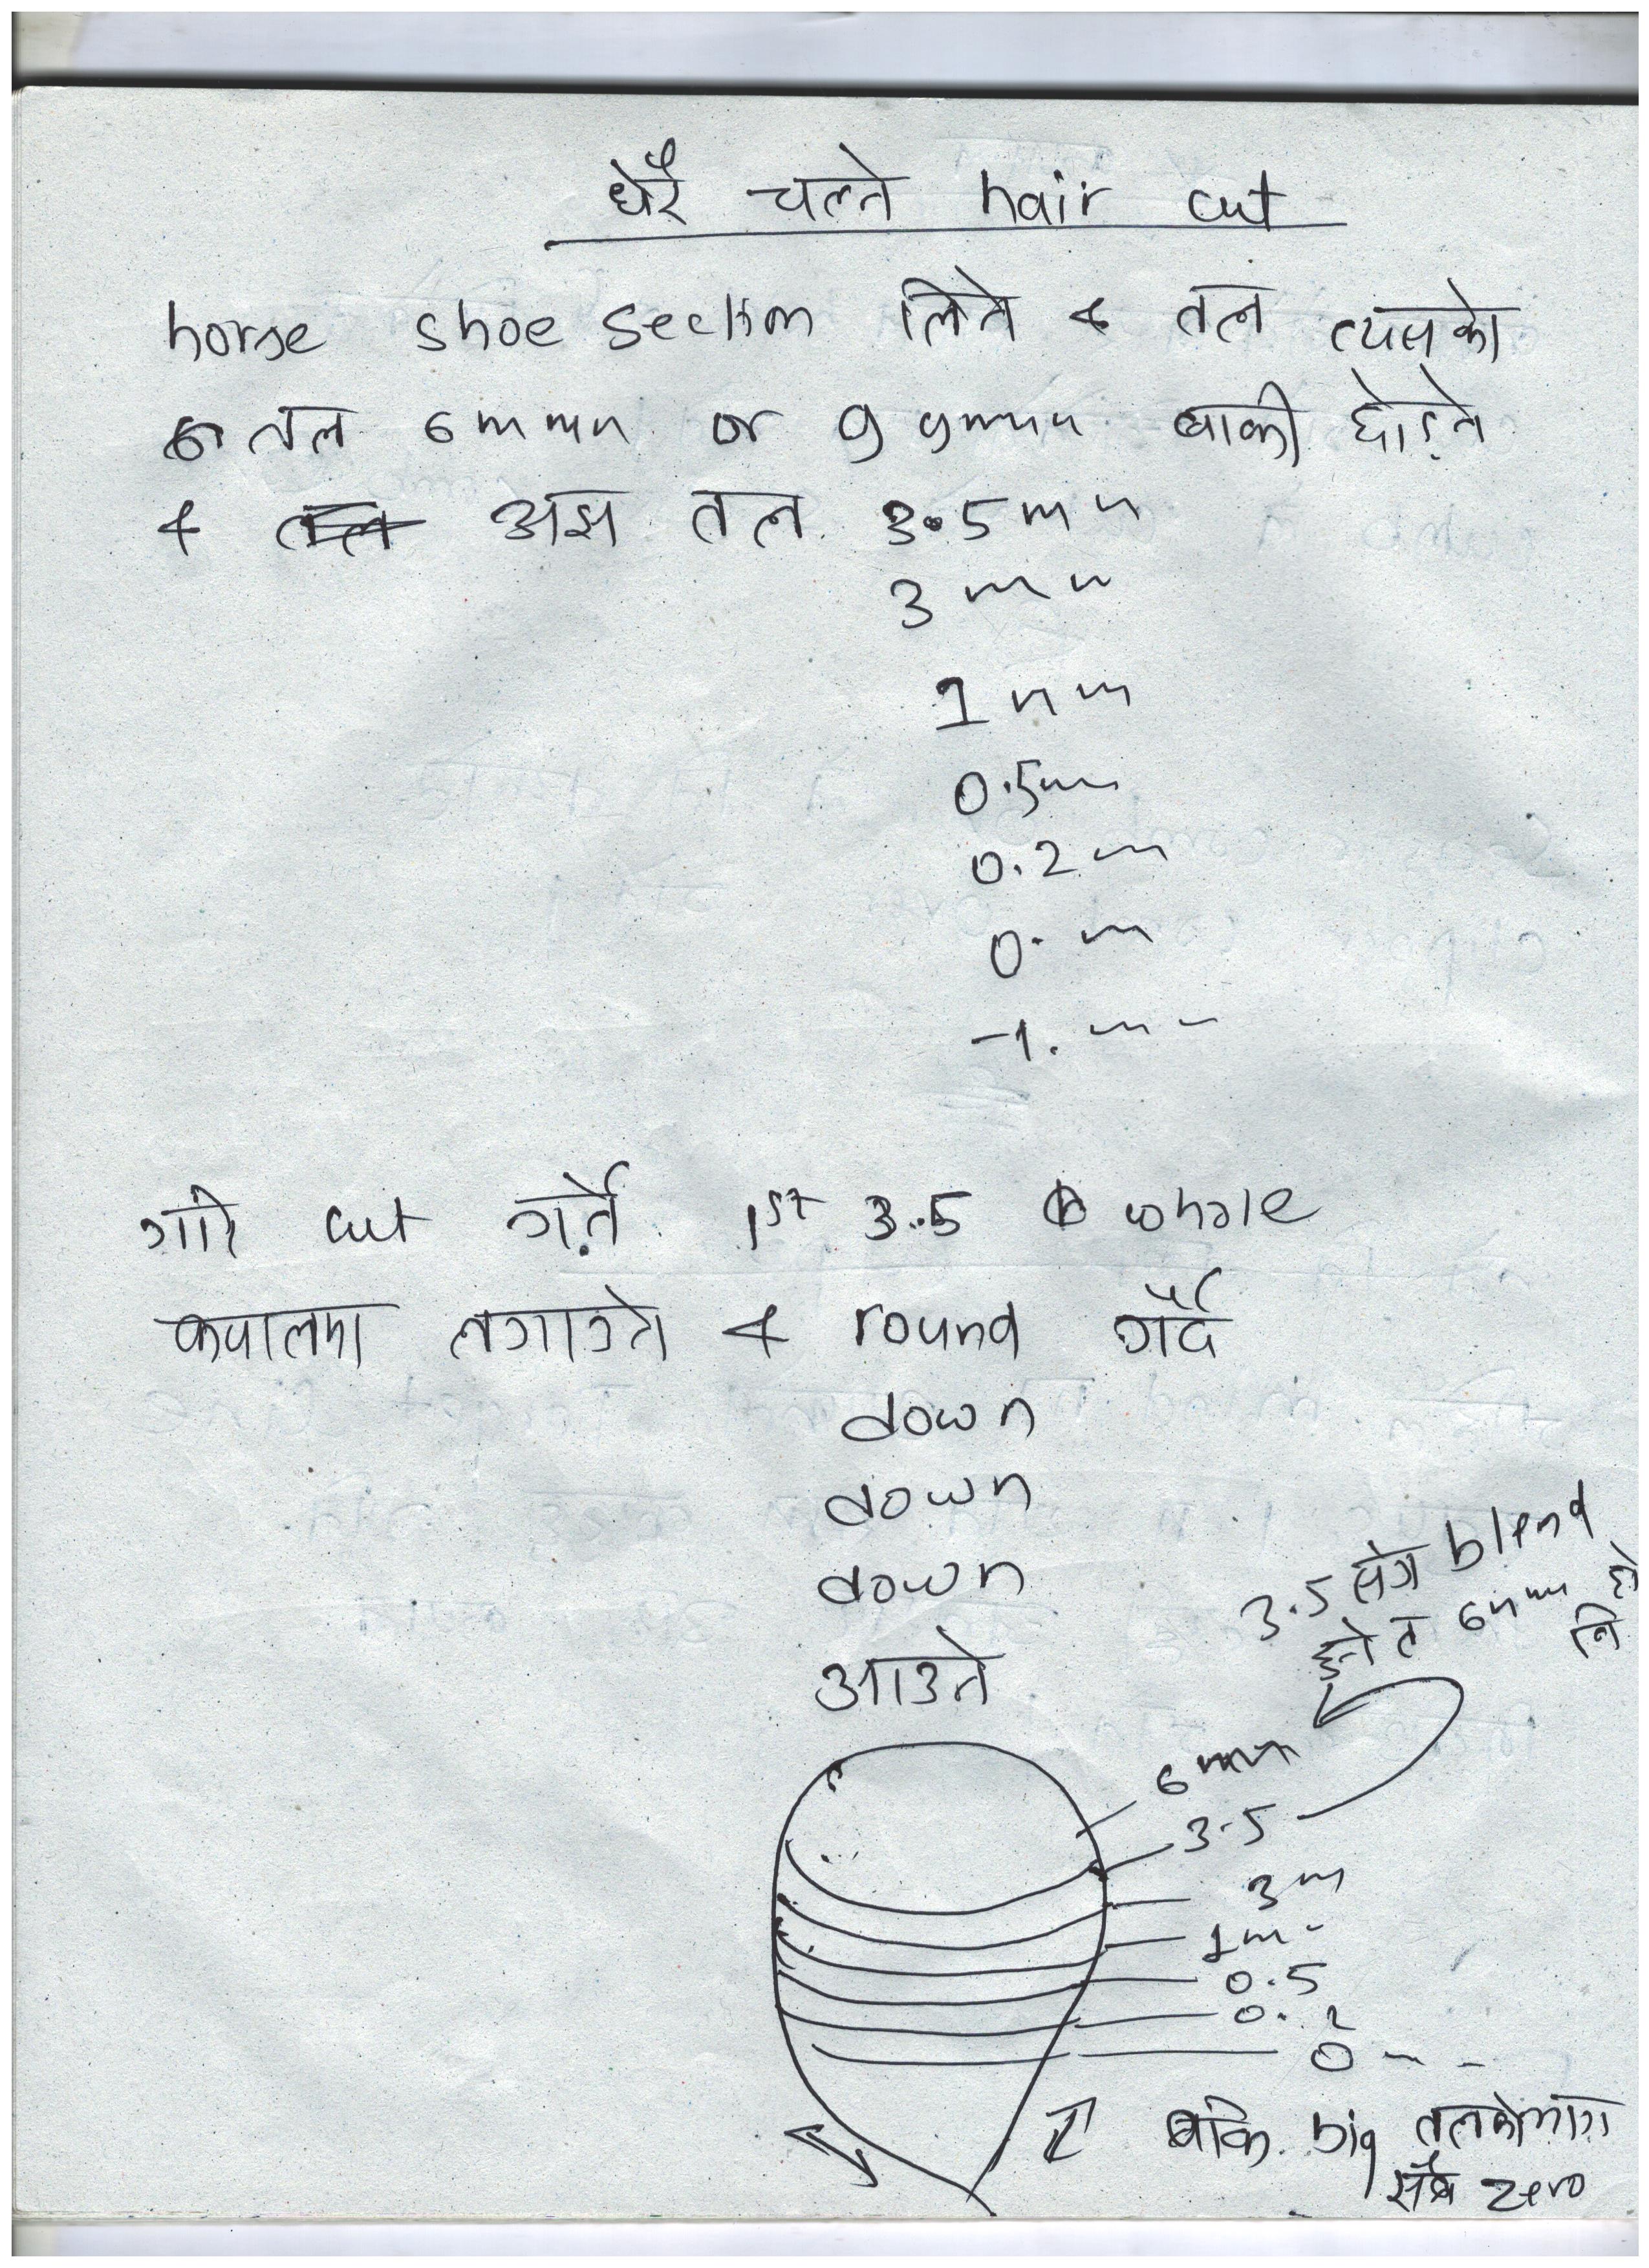 धेरै चल्ने hair cut
horse shoe section लिने & तल त्यसको
तल 6mm or 9 9mm बाकी छोड्ने
& अझ तल 3.5mm
3 mm
1 mm
0.5mm
0.2 m
0. m
-1. m
गरि cut गर्ने. 1st 3.5 whole
कपालमा लगाउने & round गर्दै
down
down
down
आउने
3.5 संग blend
हुने त 6mm हो
नि
6mm
3.5
3m
1m
0.5
0.2
0
बाकि big तलकोभाग
सबै zero